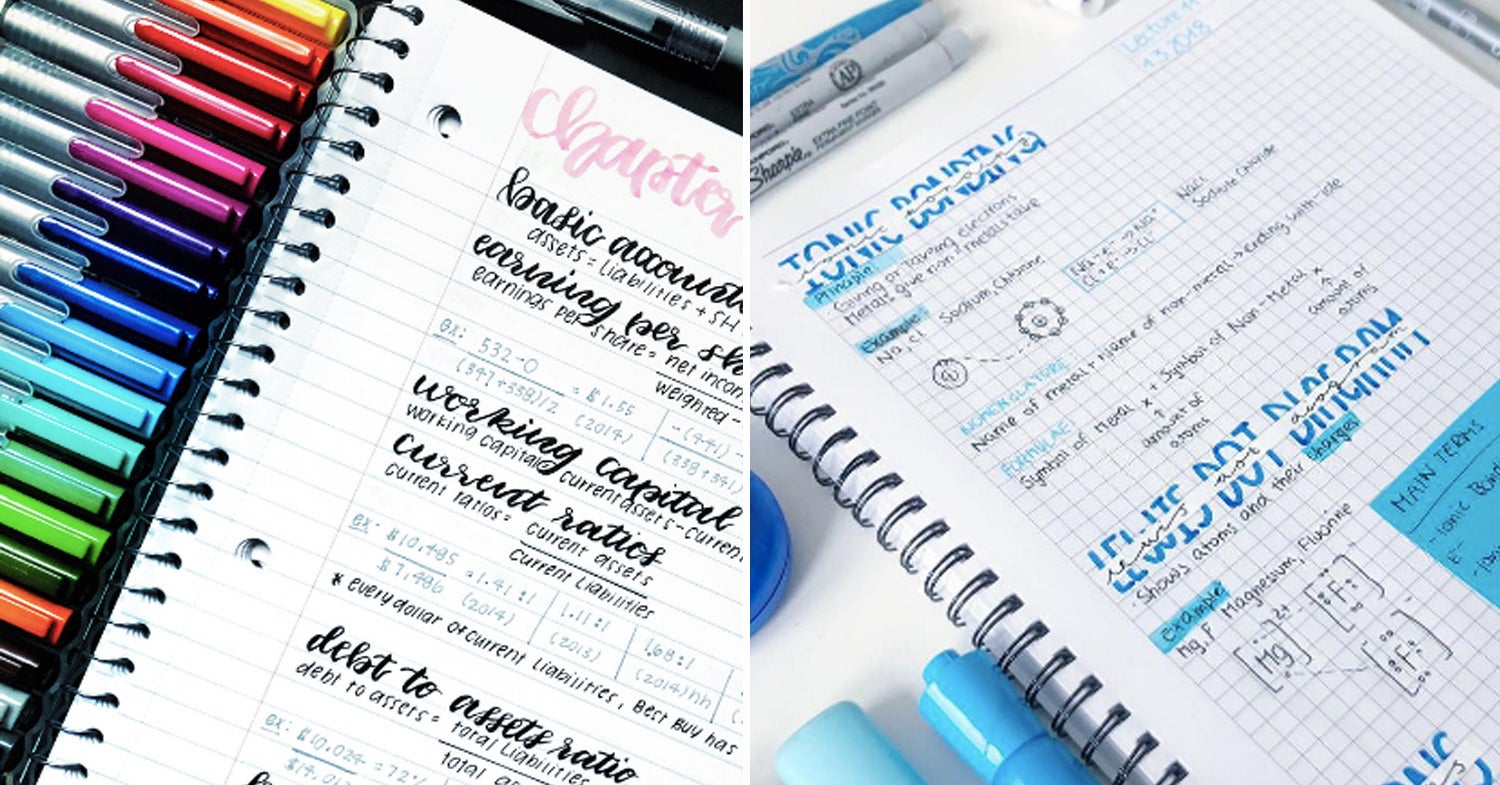 Chapter
basic account
assets = liabilities + SH
earning per sh
earnings per share = net incom
weighted -
ex: 532-0
(347+338)/2
= $1.55
(2014)
-(441)
(338+341)
working capital
working capital= current assets - current
current ratios
current ratios = current assets
current liabilities
ex: $10,485
$7,436
= 1.41 : 1
(2014)
1.11 : 1
(2013)
1.68 : 1
(2014) hh
* every dollar of current liabilities, Best Buy has
debt to assets ratio
debt to assets = total liabilities
total
ex: $10,024
= 72%
Lecture
1.3.2018
IONIC BONDING
ionic bonding
Principle
Giving or taking electrons
Metals give non metals take
Example
Na, Cl Sodium, Chlorine
Na - e⁻ → Na⁺
Cl + e⁻ → Cl⁻
NaCl
Sodium Chloride
NOMENCLATURE
Name of metal + name of non-metal → ending with -ide
FORMULAE
Symbol of Metal x + Symbol of Non-Metal x
amount of
atoms
amount of
atoms
LEWIS DOT DIAGRAM
lewis dot diagram
· Shows atoms and their charges
Example
Mg, F Magnesium, Fluorine
[Mg]²⁺
[F]⁻
[F]⁻
MAIN TERMS
- Ionic Bond
Sharpie
EXTRA FINE POINT
AP